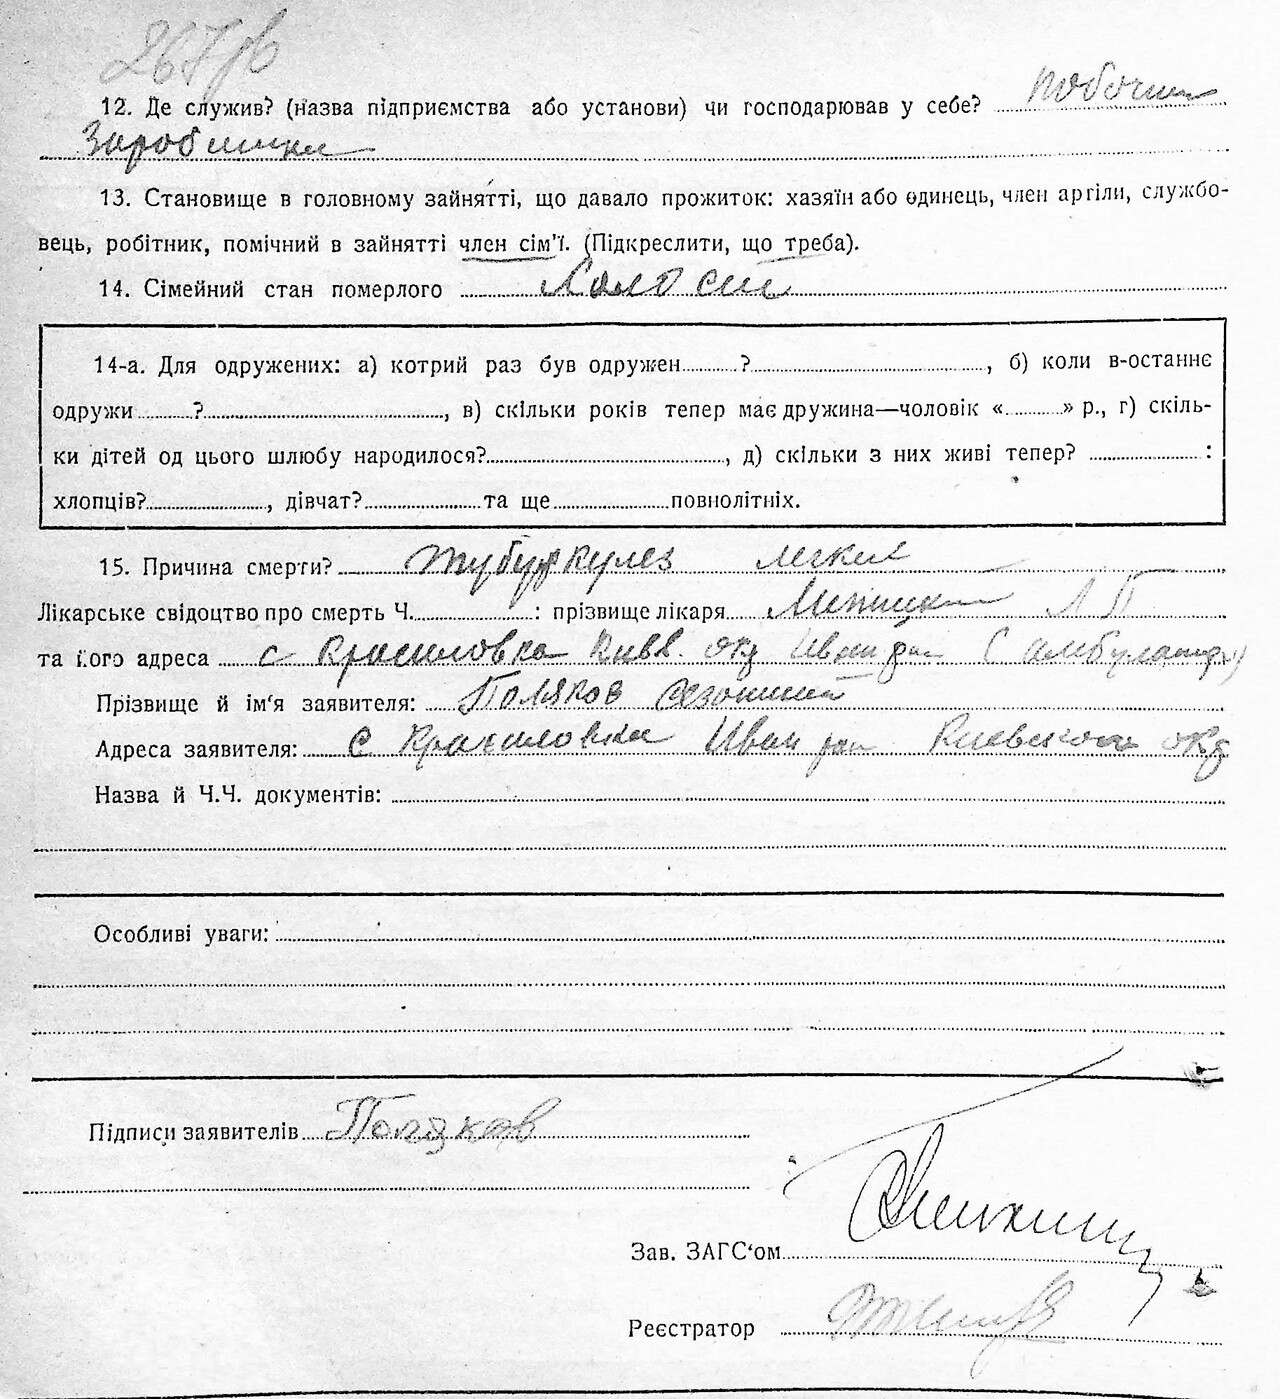 267
12. Де служив? (назва підприємства або установи) чи господарював у себе? побочни
Заробитки
13. Становище в головному зайнятті, що давало прожиток: хазяїн або одинець, член артіли, службо-
вець, робітник, помічний в зайнятті член сім'ї. (Підкреслити, що треба).
14. Сімейний стан померлого Холостий
14-а. Для одружених: а) котрий раз був одружен ? , б) коли в-останнє
одружи ? , в) скільки років тепер має дружина—чоловік « » р., г) скіль-
ки дітей од цього шлюбу народилося? , д) скільки з них живі тепер? :
хлопців? , дівчат? та ще повнолітніх.
15. Причина смерти? Тубуркулез легких
Лікарське свідоцтво про смерть Ч. : прізвище лікаря Л П
та його адреса с Красиловка Киів. окр Иван рай (амбулатор)
Прізвище й ім'я заявителя: Поляков
Адреса заявителя: с Красиловка Иван рай Киевской окр
Назва й Ч.Ч. документів:
Особливі уваги:
Підписи заявителів Поляков
Зав. ЗАГС'ом
Реєстратор